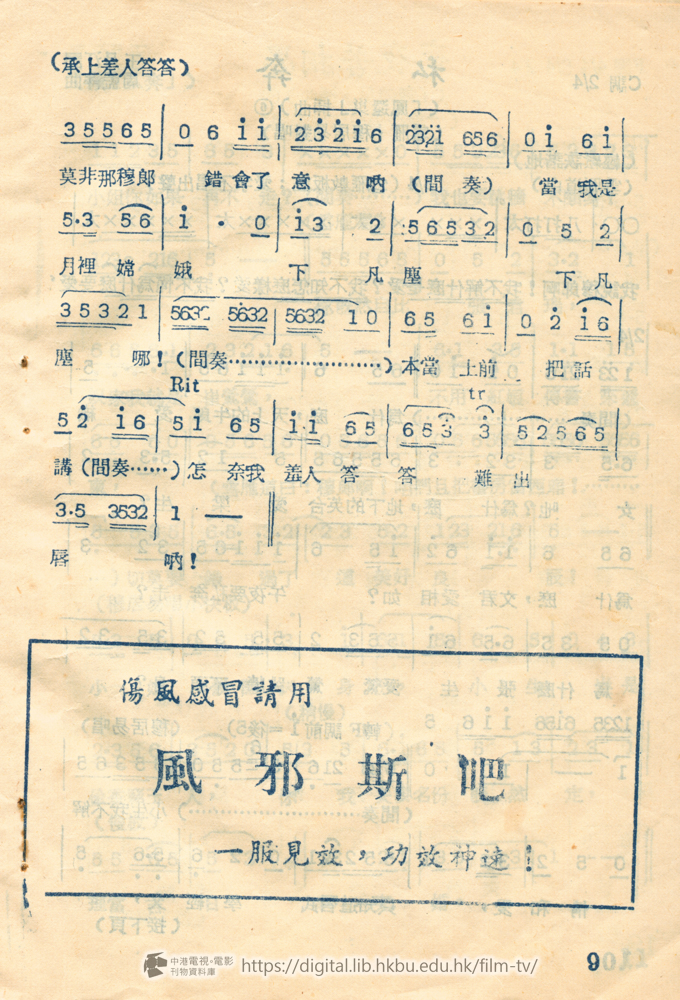 (承上差人答答)
3 5 5 6 5 | 0 6 i i | 2 3 2 1 6 | 2321 656 | 0 i 6 i |
莫非那穆郎 錯會了 意 吶 (間 奏) 當 我是
5·3 5 6 | i · 0 | i 3 2 | 5 6 5 3 2 | 0 5 2 |
月裡 嫦 娥 下 凡 塵 下 凡
3 5 3 2 1 | 5632 5632 | 5632 1 0 | 6 5 6 i | 0 2 i 6 |
塵 哪! (間奏……………………) 本當 上前 把 話
Rit tr
5 2 i 6 | 5 i 6 5 | i·i 6 5 | 6 5 3 3 | 5 2 5 6 5 |
講 (間奏……) 怎 奈我 羞人 答 答 難 出
3·5 3532 | 1 — ‖
唇 吶!
傷風感冒請用
風邪斯吧
一服見效,功效神速!
(接下頁)
9
中港電視·電影
刊物資料庫
https://digital.lib.hkbu.edu.hk/film-tv/